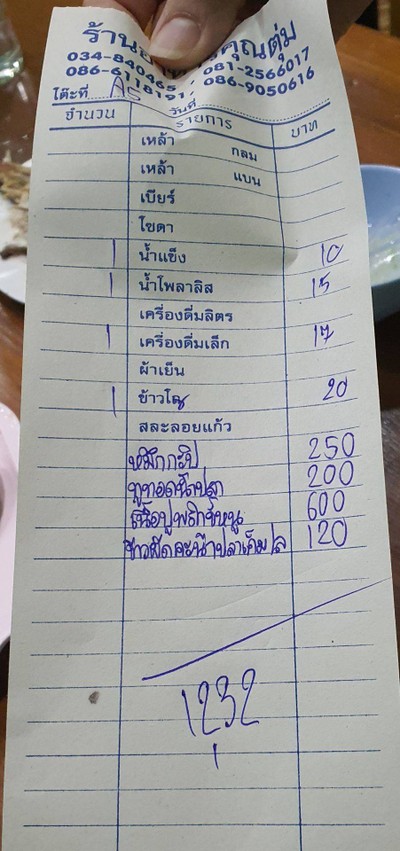 ร้านอาหารคุณตุ่ม
034-840465, 081-2566017
086-6118191, 086-9050616
โต๊ะที่ A5 วันที่
จำนวน รายการ บาท
เหล้า กลม
เหล้า แบน
เบียร์
โซดา
1 น้ำแข็ง 10
1 น้ำโพลาลิส 15
เครื่องดื่มลิตร
1 เครื่องดื่มเล็ก 17
ผ้าเย็น
1 ข้าวโถ 20
สละลอยแก้ว
หมึกกะปิ 250
ทูทอดน้ำปลา 200
เนื้อปูพริกขี้หนู 600
ข้าวผัดคะน้าปลาเค็ม ล 120
1232